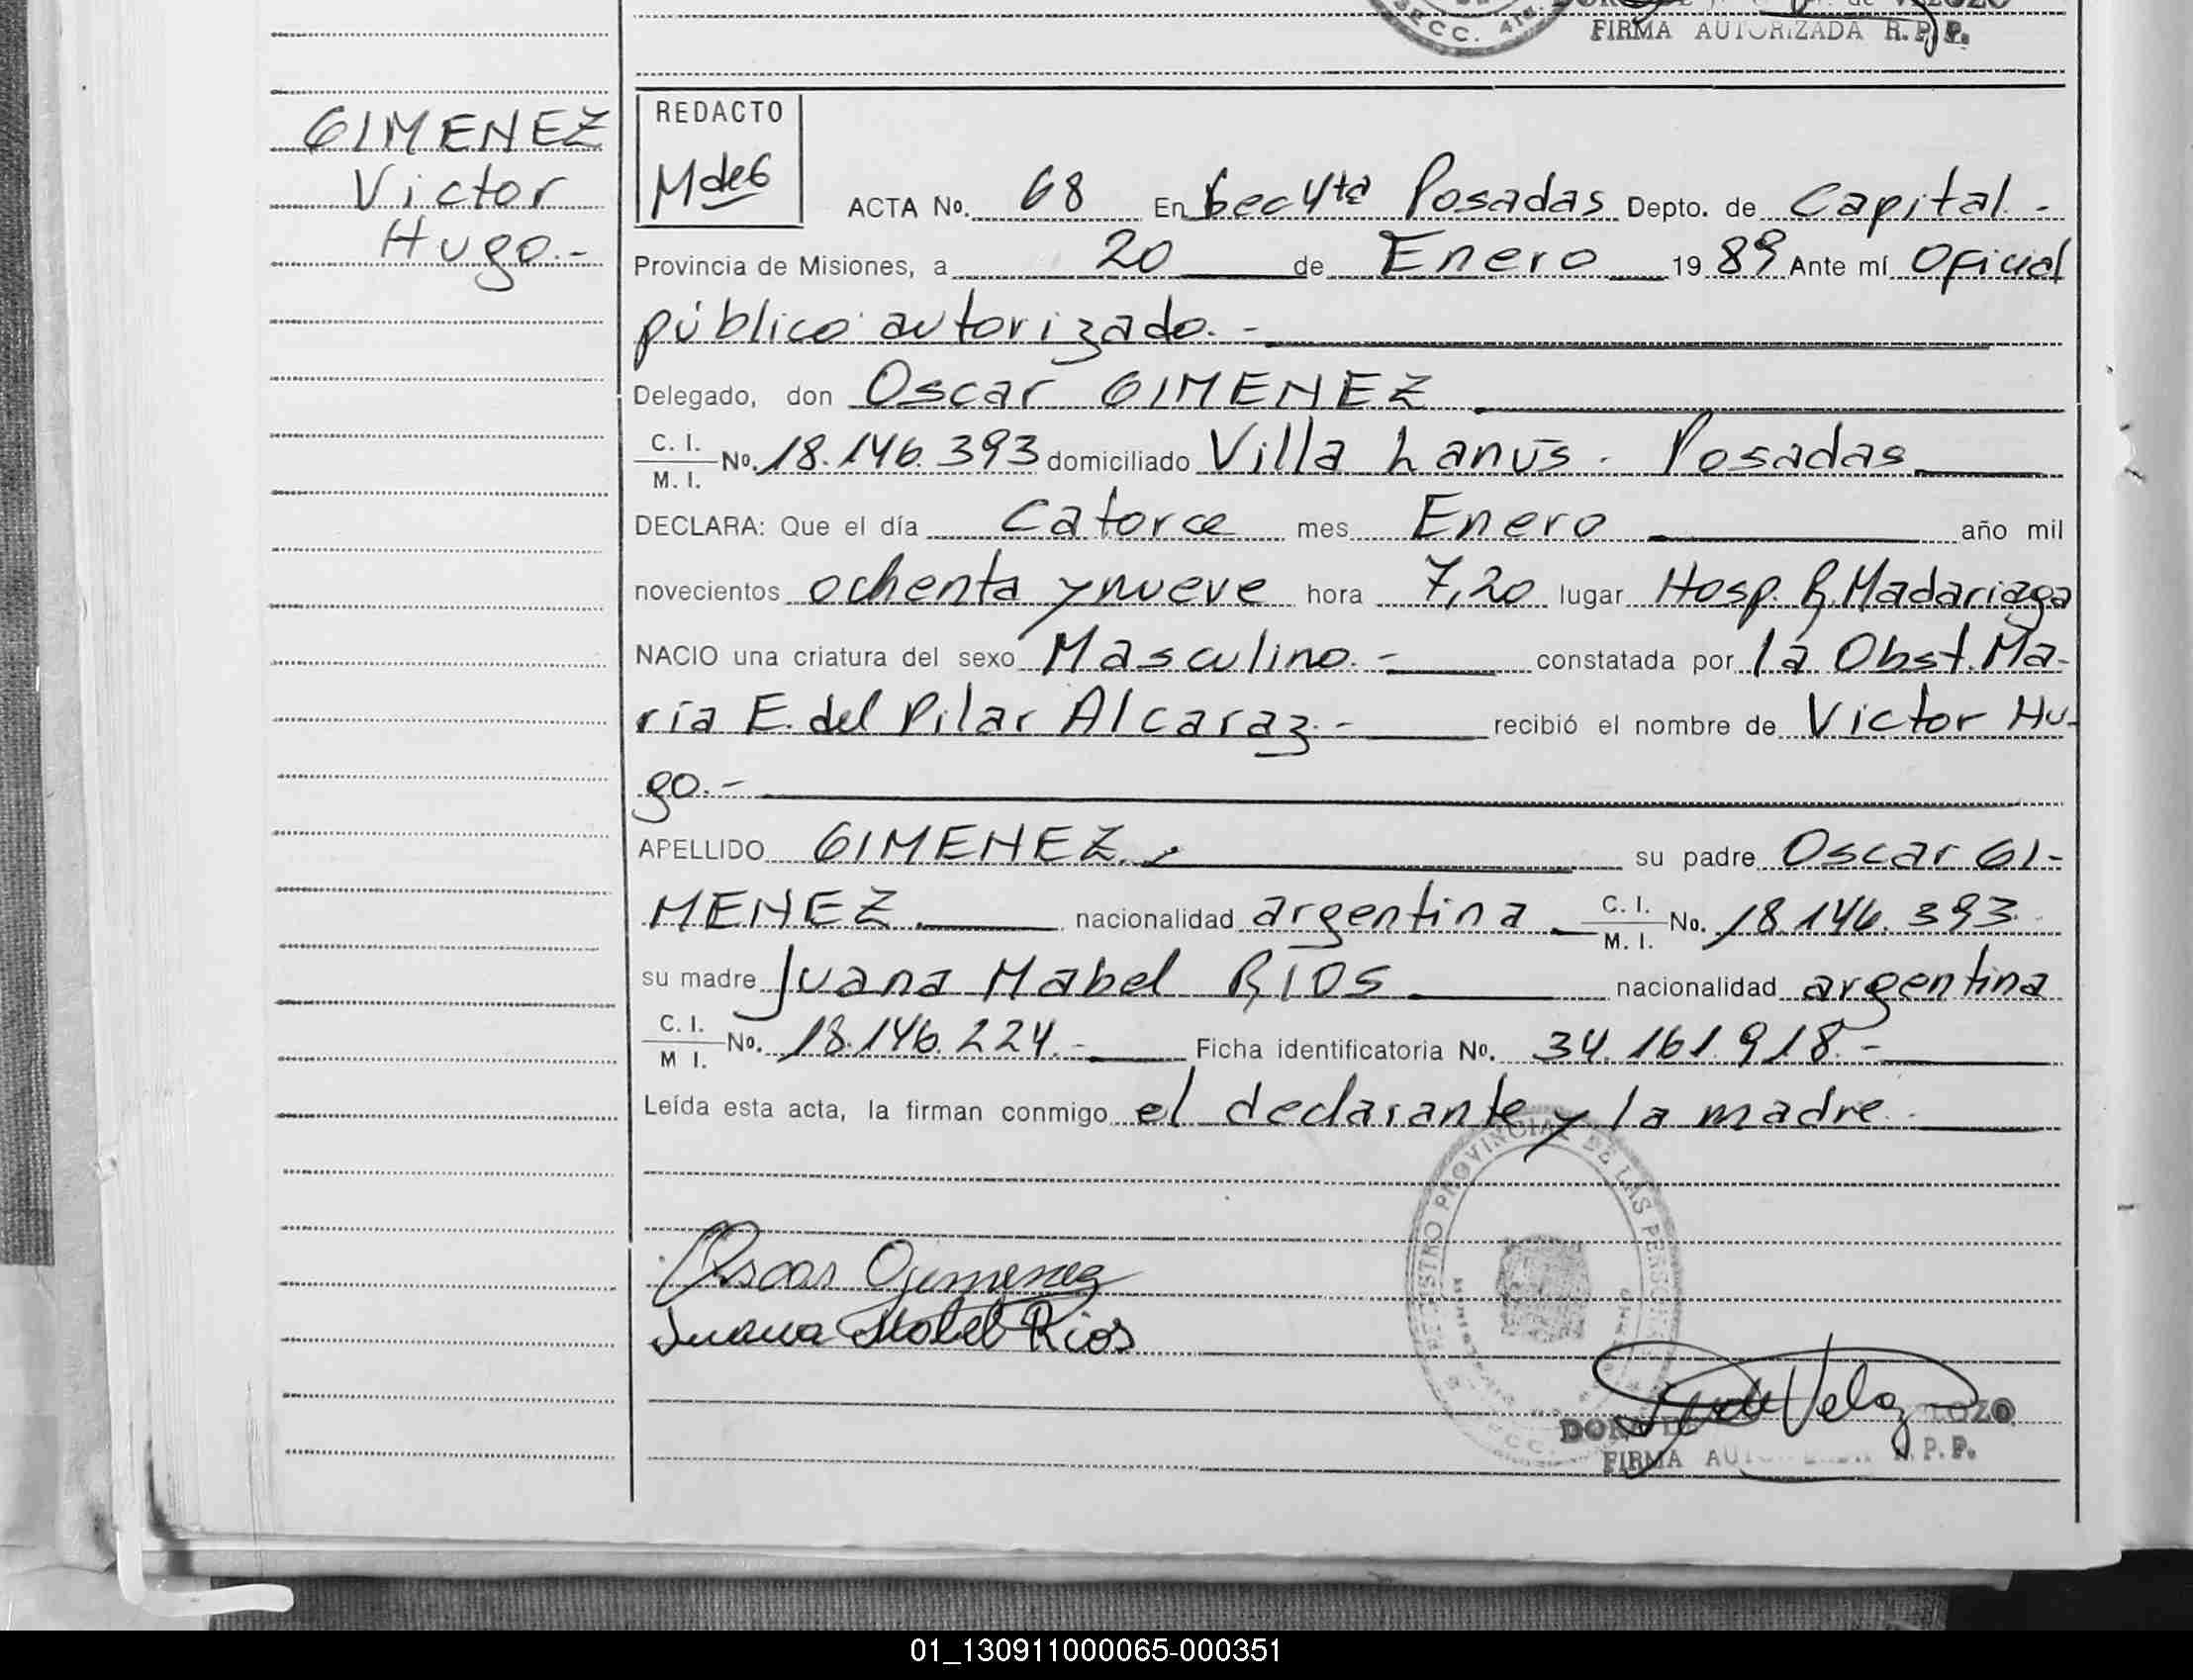 SECC. 4ta.
FIRMA AUTORIZADA R.P.P.
GIMENEZ
Victor
Hugo.-
REDACTO
MdeG
ACTA No. 68 En Secc 4ta Posadas Depto. de Capital.-
Provincia de Misiones, a 20 de Enero 1989 Ante mí Oficial
público autorizado.-
Delegado, don Oscar GIMENEZ
C. I. / M. I. No. 18.146.393 domiciliado Villa Lanús - Posadas
DECLARA: Que el día Catorce mes Enero año mil
novecientos ochenta y nueve hora 7,20 lugar Hosp. R. Madariaga
NACIO una criatura del sexo Masculino.- constatada por la Obst. Ma-
ría E. del Pilar Alcaraz.- recibió el nombre de Victor Hu-
go.-
APELLIDO GIMENEZ.- su padre Oscar GI-
MENEZ nacionalidad argentina C. I. / M. I. No. 18.146.393.
su madre Juana Mabel RIOS nacionalidad argentina
C. I. / M I. No. 18.146.224.- Ficha identificatoria No. 34.161.918.-
Leída esta acta, la firman conmigo el declarante y la madre.
REGISTRO PROVINCIAL DE LAS PERSONAS
Oscar Gimenez
Juana Mabel Rios
FIRMA AUTORIZADA R.P.P.
01_130911000065-000351